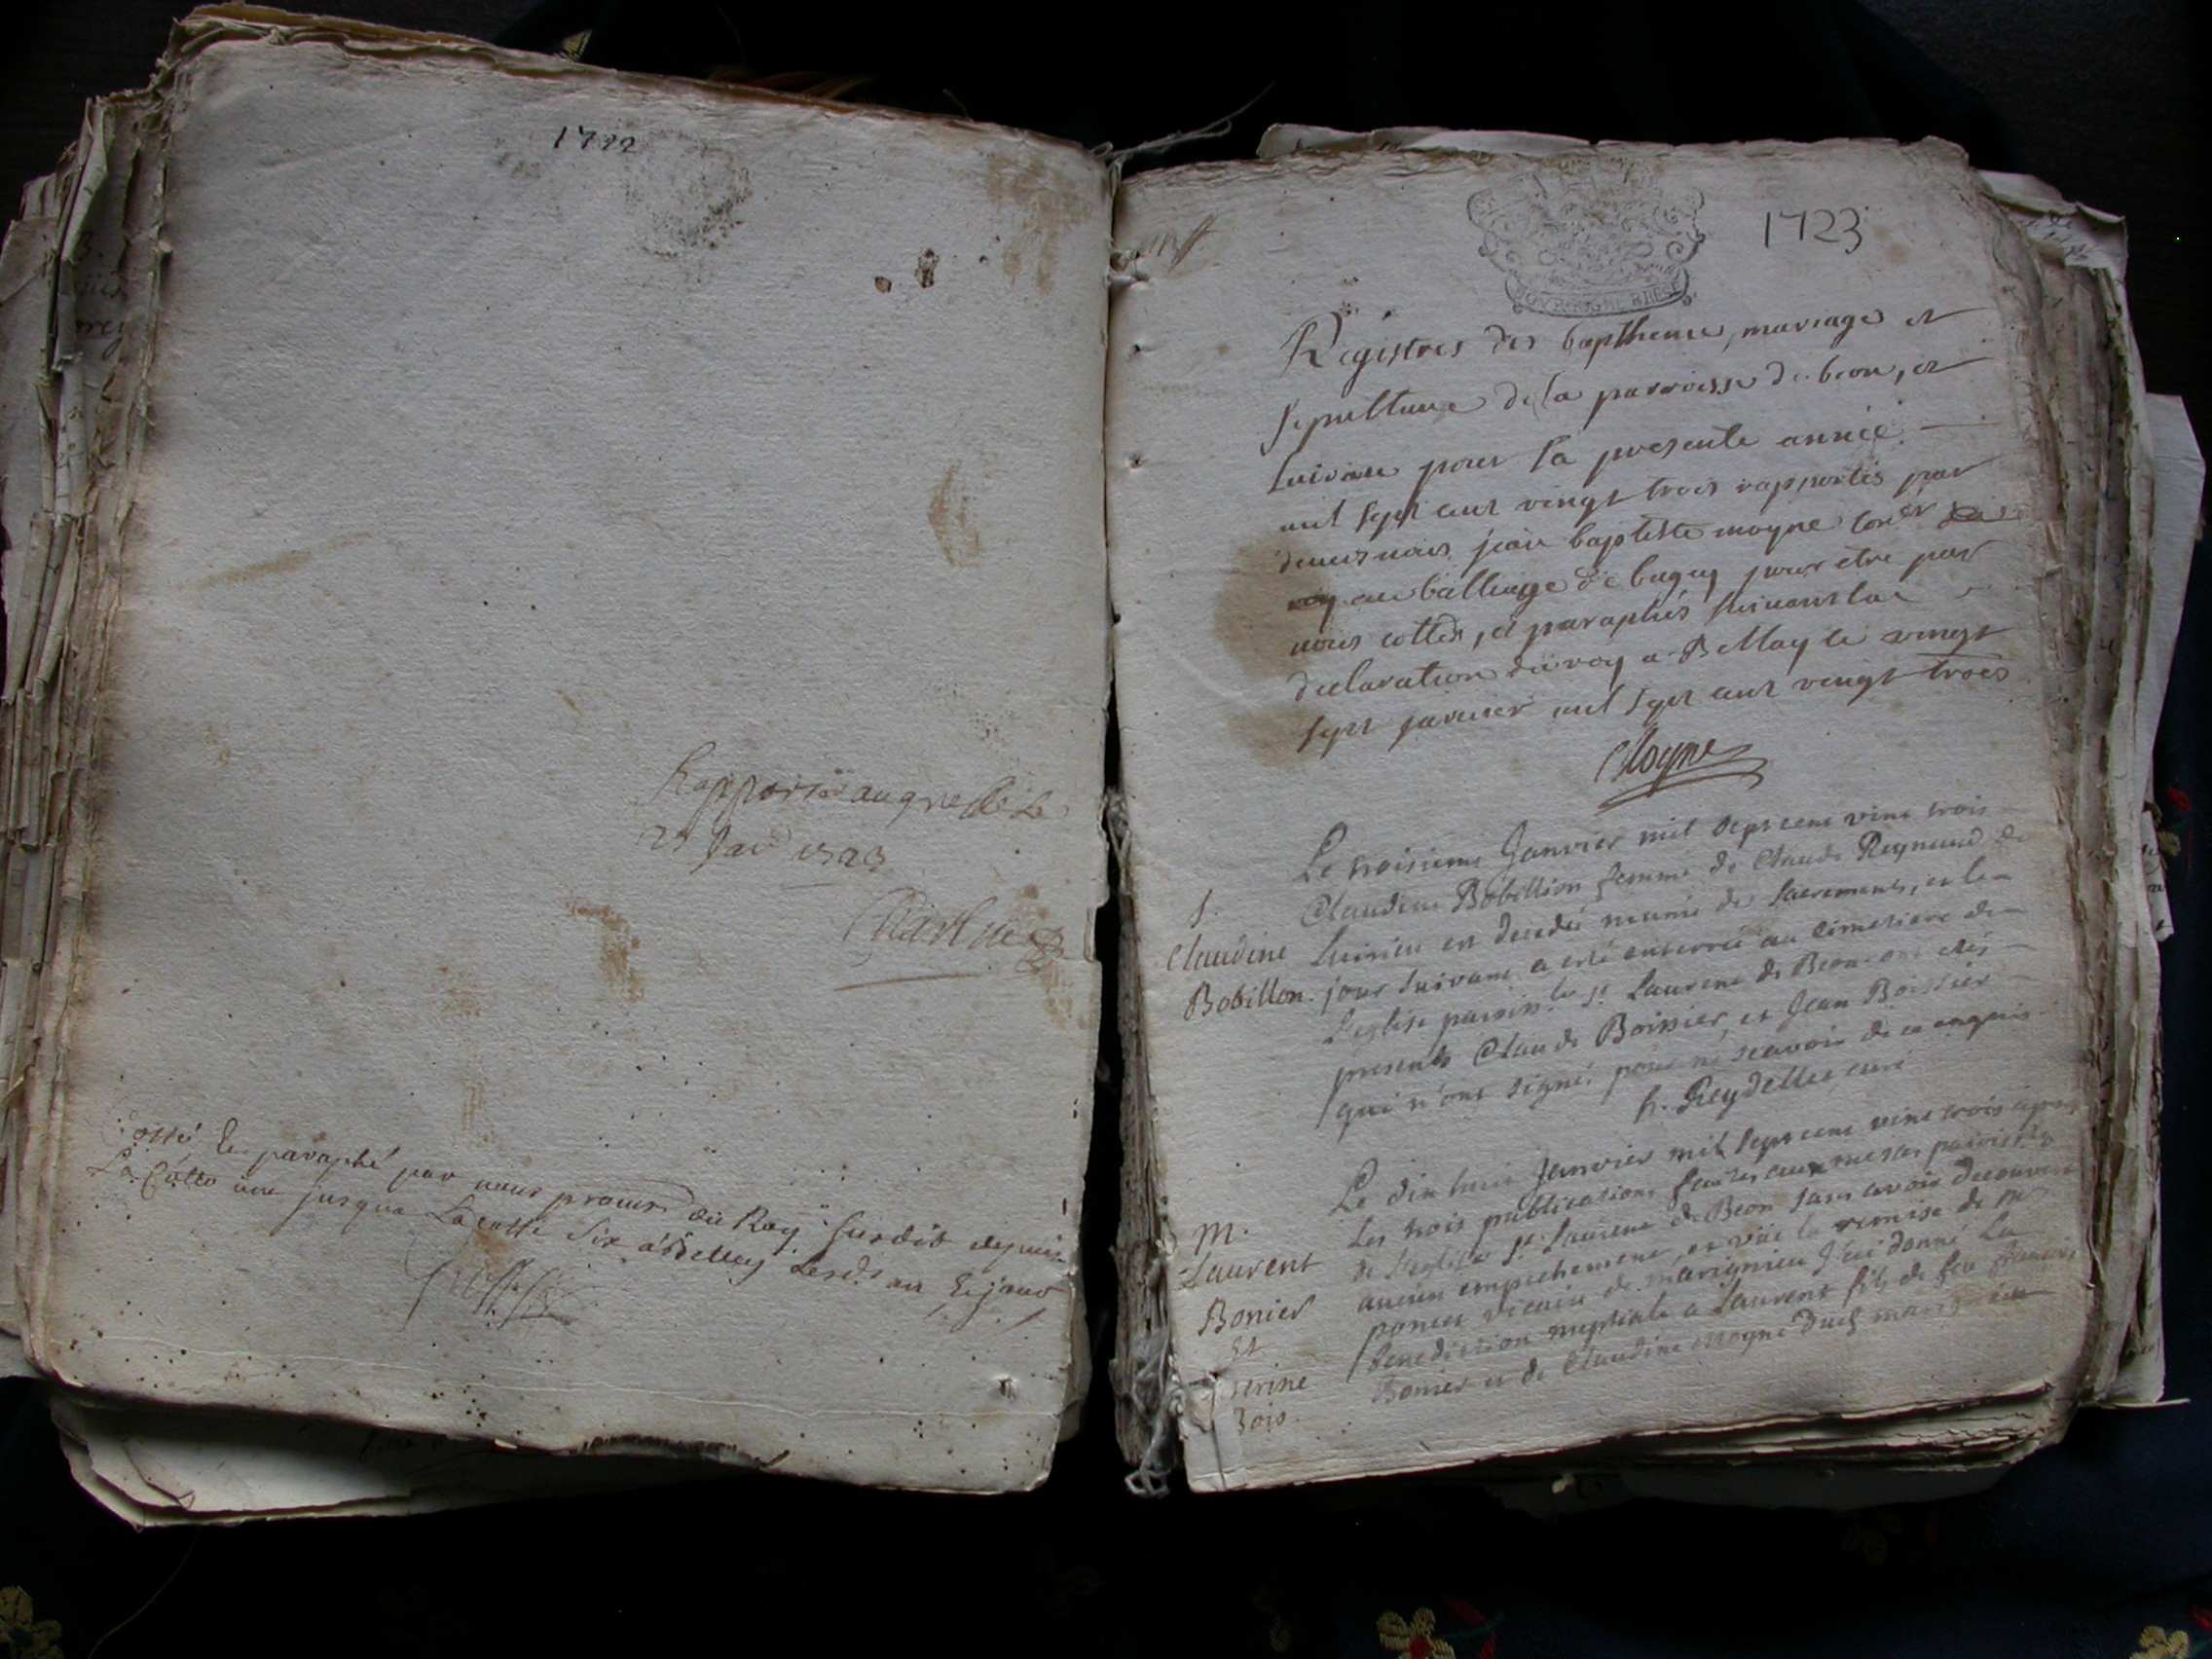 1722
Rapporté au greffe le
27 Janr 1723
Cotté Et paraphé par nous procur du Roy susdit depuis
La Cotte une jusqua La cotte Six a Belley Lesd. an Et jour
1723
BOURGOGNE BRESSE
Registres des baptheme, mariage et
sepulture de la parroisse de beon, et
Luirieu pour la presente année
mil sept cent vingt trois rapportés par
devers nous jean baptiste moyne consr du
roy au balliage de bugey pour etre par
nous cottés, et paraphés suivant la
declaration du roy a Belley le vingt
sept janvier mil sept cent vingt trois
Moyne
Le troisieme Janvier mil sept cent vint trois
Claudine Bobillion femme de Claude Reynaud de
Luirieu est decedée munie des sacremens, et le
jour suivant a esté enterrée au cimetiere de
l'eglise paroisle St Laurent de Beon ont etés
presents Claude Boissier, et Jean Boissier
qui n'ont signé pour ne scavoir de ce enquis
Reydellet curé
S.
Claudine
Bobillon.
Le dix huit Janvier mil sept cent vint trois apres
les trois publications faites aux messes paroisles
de l'eglise St Laurent de Beon sans avoir decouvert
aucun empechement, et vüe la remise de Mr
poncet vicaire de marignieu J'ai donné La
benediction nuptiale a Laurent fils de feu francois
Bonier et de Claudine Moyne dud marignieu
M.
Laurent
Bonier
et